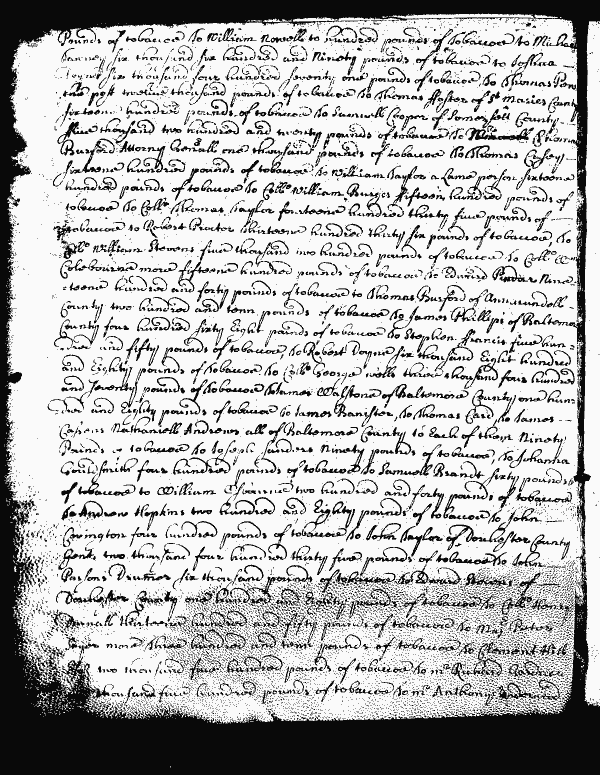 Pounds of tobaccoe to William Nowell to hundred pounds of tobaccoe to Michael
six thousand six hundred and Ninety pounds of tobaccoe to Joshua
six thousand four hundred seventy one pounds of tobaccoe to Thomas
the post twelve thousand pounds of tobaccoe to Thomas ffoster of St Maries County
sixteene hundred pounds of tobaccoe to Samuell Cooper of Somersett County
ffive thousand two hundred and twenty pounds of tobaccoe to Thomas
Burford Attorny Generall one thousand pounds of tobaccoe to Thomas Cosey
sixteene hundred pounds of tobaccoe to William Taylor a Lame person sixteene
hundred pounds of tobaccoe to Collo William Burges fifteen hundred pounds of
tobaccoe to Collo Thomas Taylor forteene hundred thirty five pounds of
tobaccoe to Robert Proctor thirteene hundred thirty six pounds of tobaccoe, to
Collo William Stevens five thousand two hundred pounds of tobaccoe to Collo
Colebourne more fifteene hundred pounds of tobaccoe to Edward Pindar Nine
teene hundred and forty pounds of tobaccoe to Thomas Burford of Annarundell
County two hundred and tenn pounds of tobaccoe to James Phillips of Baltemore
County four hundred sixty Eight pounds of tobaccoe to Stephen ffrancis five hun
dred and fifty pounds of tobaccoe to Robert Doyne six thousand Eight hundred
and Eighty pounds of tobaccoe to Collo George Wells three thousand four hundred
and seventy pounds of tobaccoe to James Walstone of Baltemore County one hun
dred and Eighty pounds of tobaccoe to James Banister, to Thomas Card, to James
Nathaniell Andrews all of Baltemore County to Each of them Ninety
Pounds of tobaccoe to Joseph Sanders Ninety pounds of tobaccoe, to Johanna
Gouldsmith four hundred pounds of tobaccoe to Samuell Brandt sixty pounds
of tobaccoe to William two hundred and forty pounds of tobaccoe
to Andrew Hopkins two hundred and Eighty pounds of tobaccoe to John
Covington four hundred pounds of tobaccoe to John Taylor of Dorchester County
Gent two thousand four hundred thirty five pounds of tobaccoe to John
Parsons Drumer six thousand pounds of tobaccoe to Edward Stevens of
Dorchester County one hundred and Eighty pounds of tobaccoe to Collo Henry
thirteene hundred and fifty pounds of tobaccoe to Majr Peter
Sayer more three hundred and tenn pounds of tobaccoe to Clement Hill
two thousand five hundred pounds of tobaccoe to mr Richard Gardner
thousand five hundred pounds of tobaccoe to mr Anthony